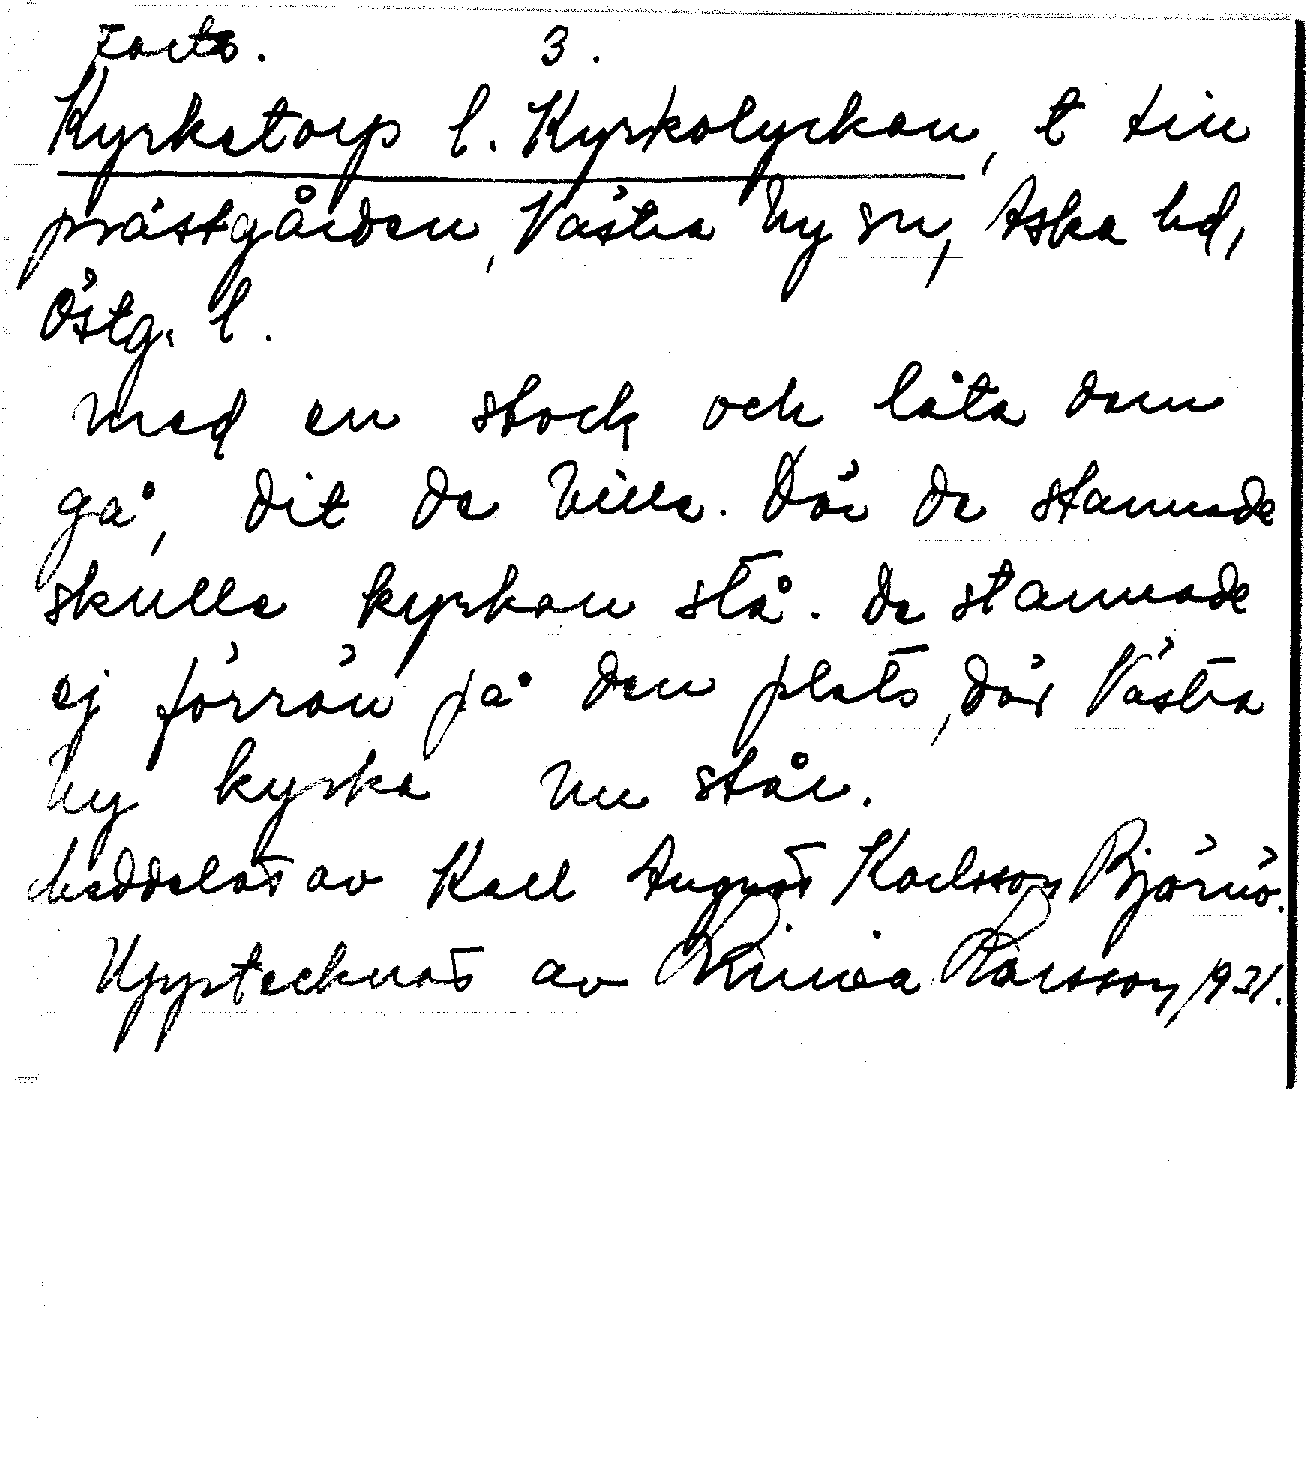 Forts. 3.
Kyrketorp l. Kyrkolyckan, t till
prästgården, Västra Ny sn, Aska hd,
Östg. l.
med en stock och låta dem
gå, dit de ville. Där de stannade
skulle kyrkan stå. De stannade
ej förrän på den plats, där Västra
Ny kyrka nu står.
Meddelat av Karl August Karlsson Björnö.
Upptecknat av Larsson, 1931.